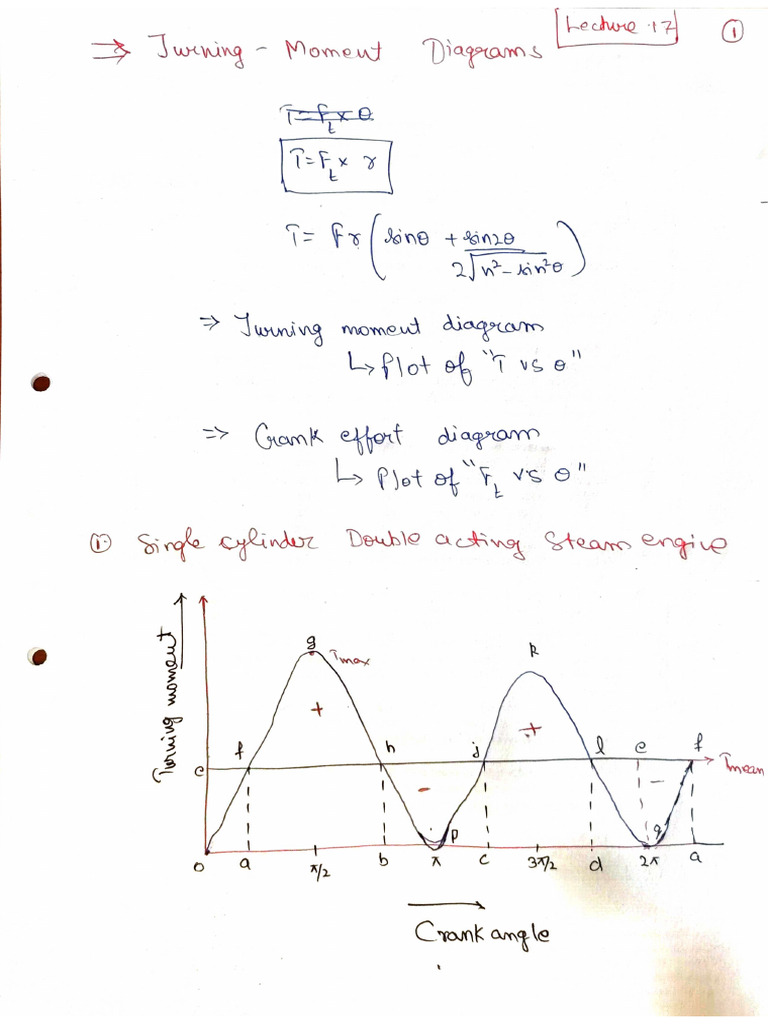 Lecture 17
①
⇒ Turning - Moment Diagrams
T = Ft × θ
T = Ft × r
T = Fr ( sinθ + sin2θ / 2√(n² - sin²θ) )
⇒ Turning moment diagram
↳ Plot of "T vs θ"
⇒ Crank effort diagram
↳ Plot of "Ft vs θ"
① Single cylinder Double acting Steam engine
Turning moment
g
Tmax
k
+
+
f h j l e f
e
Tmean
-
-
p
q
0 a π/2 b π c 3π/2 d 2π a
Crank angle